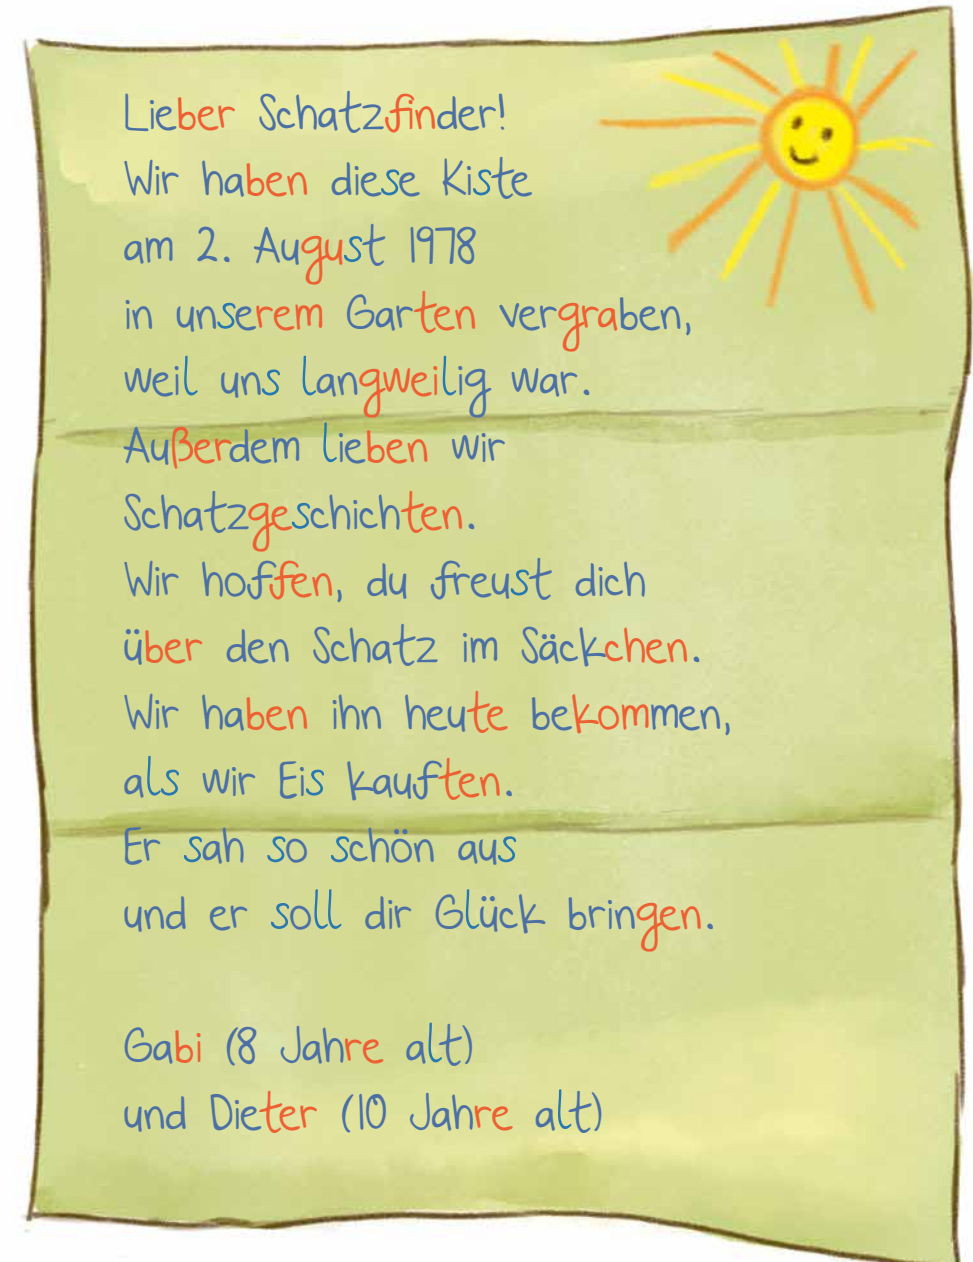 Lieber Schatzfinder!
Wir haben diese Kiste
am 2. August 1978
in unserem Garten vergraben,
weil uns langweilig war.
Außerdem lieben wir
Schatzgeschichten.
Wir hoffen, du freust dich
über den Schatz im Säckchen.
Wir haben ihn heute bekommen,
als wir Eis kauften.
Er sah so schön aus
und er soll dir Glück bringen.
Gabi (8 Jahre alt)
und Dieter (10 Jahre alt)